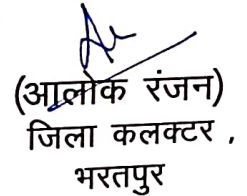 (आलोक रंजन)
जिला कलक्टर ,
भरतपुर